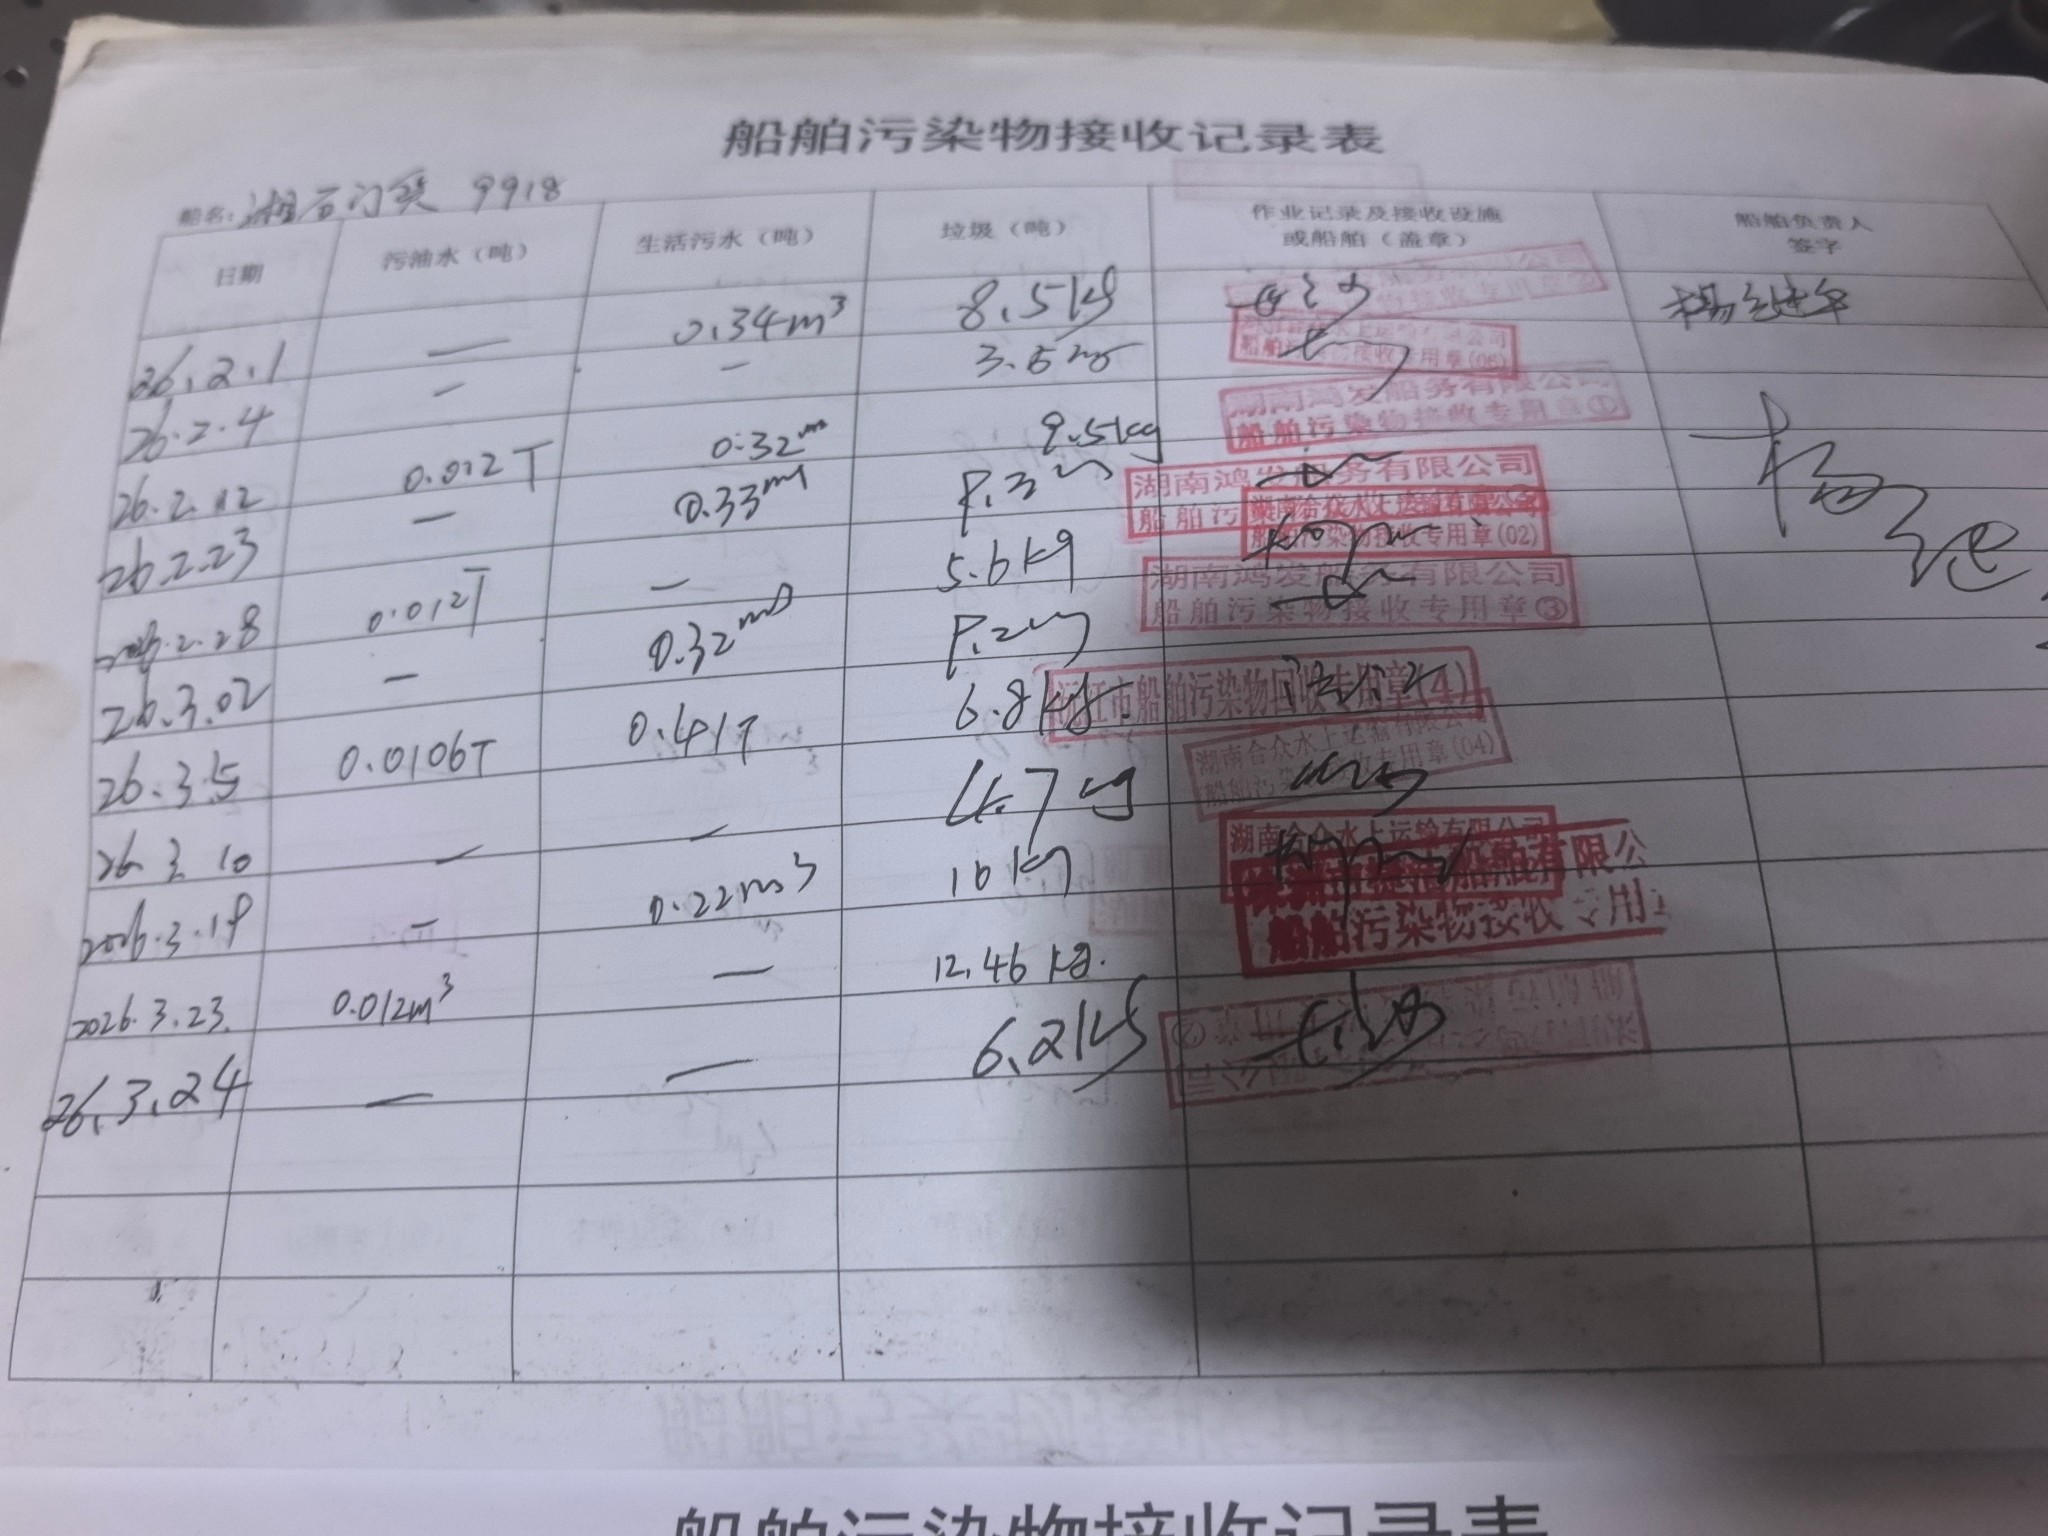 船舶污染物接收记录表
船名: 湘石门货 9918
日期 污油水（吨） 生活污水（吨） 垃圾（吨） 作业记录及接收设施或船舶（盖章） 船舶负责人签字
26.2.1 — 0.34m³ 8.5kg
26.2.4 — — 3.5kg
船舶污染物接收专用章(06)
26.2.12 0.012T 0.32m 9.5kg
湖南鸿发船务有限公司
船舶污染物接收专用章①
26.2.23 — 0.33m³
湖南鸿发船务有限公司
船舶污
2026.2.28 0.012T — 5.6kg
湖南合众水上运输有限公司
船舶污染物接收专用章(02)
26.3.02 — 0.32m³
湖南鸿发船务有限公司
船舶污染物接收专用章③
26.3.5 0.0106T 0.41T 6.8kg.
沅江市船舶污染物回收专用章(4)
26.3.10 — — 4.7kg
湖南合众水上运输有限公司
船舶污染物接收专用章(04)
2026.3.19 — 0.22m³ 16kg
湖南合众水上运输有限公司
2026.3.23. 0.012m³ — 12.46kg.
船舶有限公
船舶污染物接收专用
26.3.24 — — 6.2kg
船舶污染物接收记录表